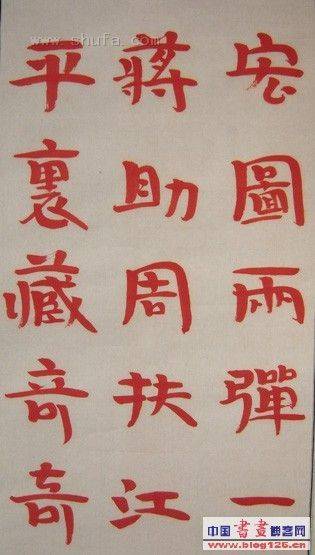 宏圖兩彈一
蔣助周扶江
平裏藏竒奇
www.shufa.com
中国書畫博客网